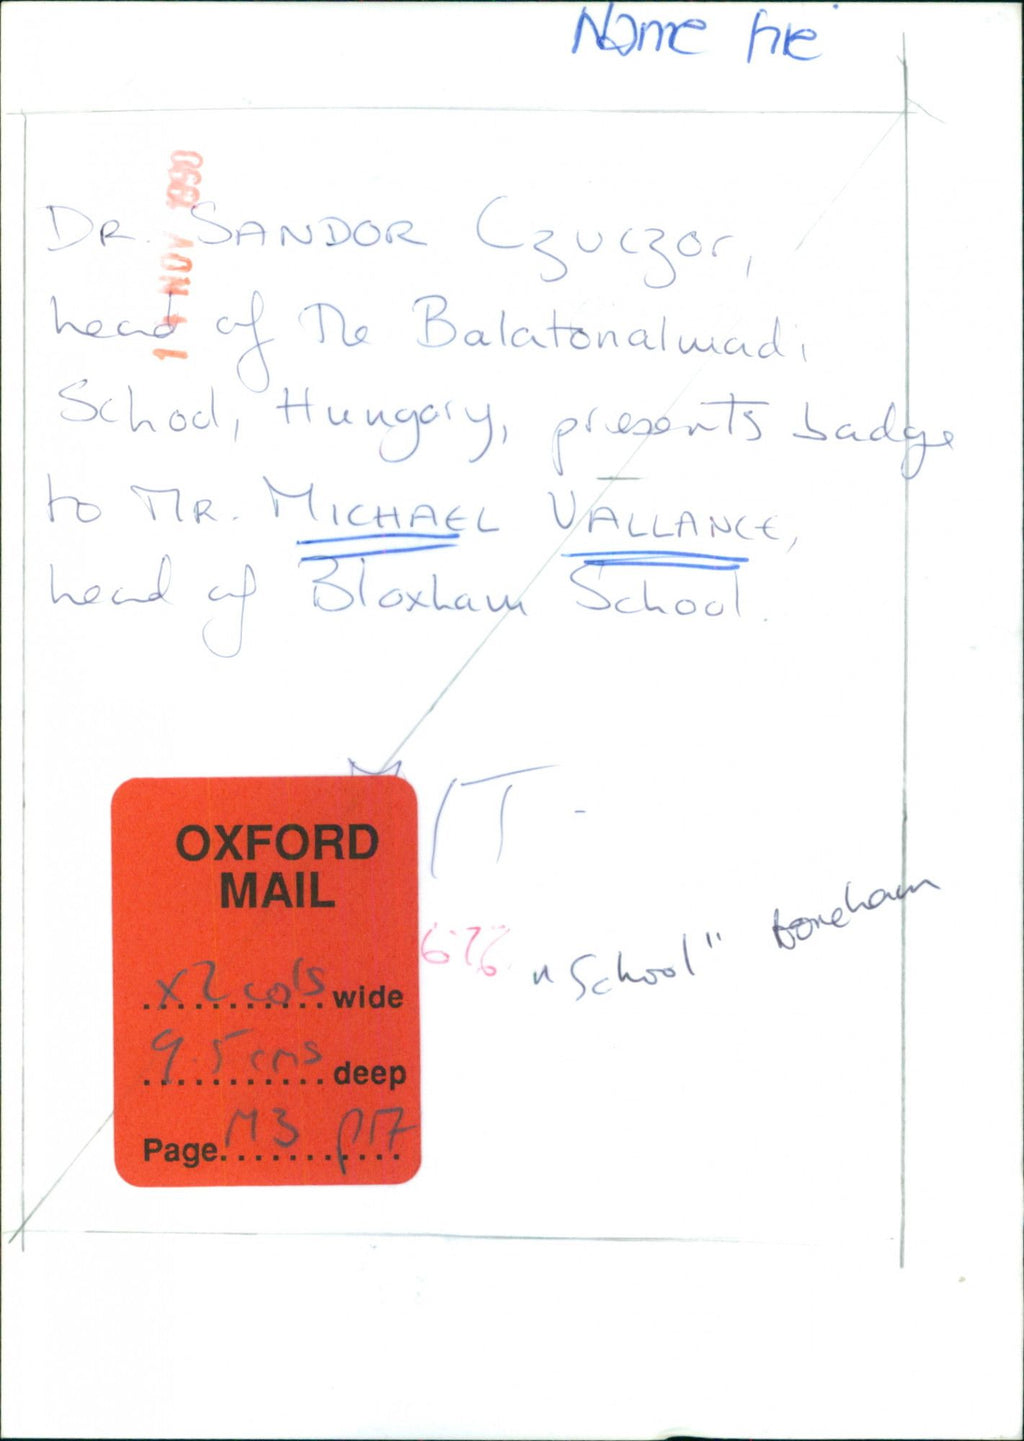 Name file
14 NOV 1990
DR. SANDOR Czuczor,
head of The Balatonalmadi
School, Hungary, presents badge
to MR. MICHAEL VALLANCE,
head of Bloxham School.
OXFORD
MAIL
x2 cols wide
9.5 cms deep
Page M3 p17
676
"School"